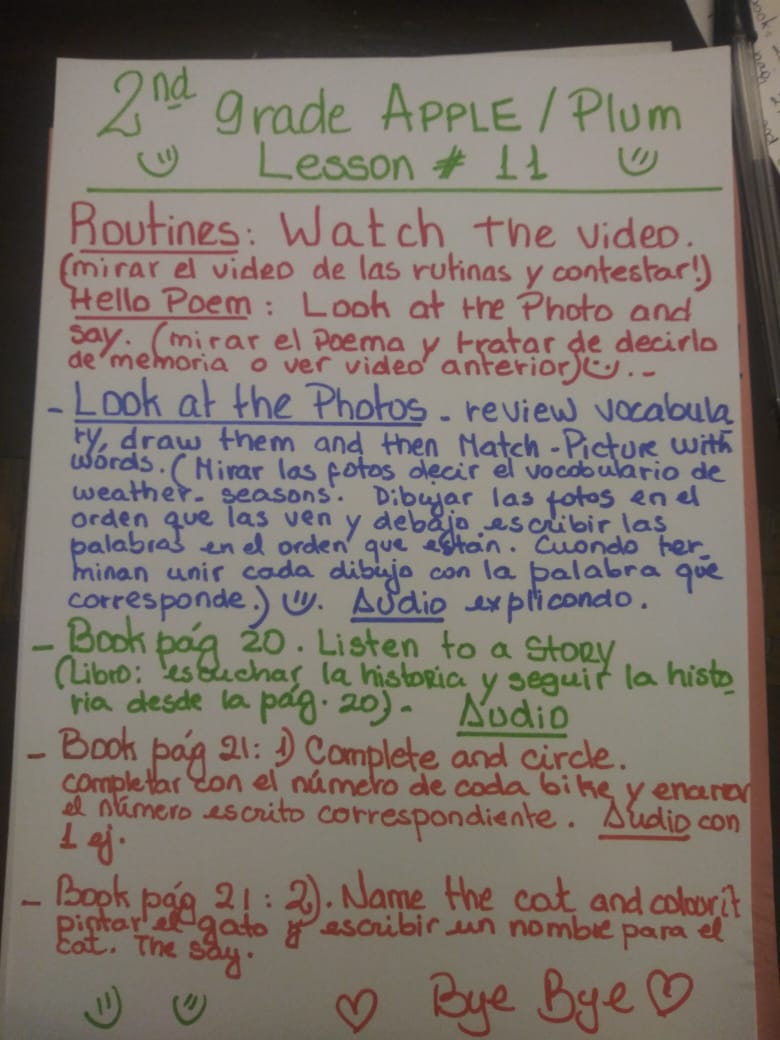 2nd grade APPLE / Plum
Lesson # 11
Routines: Watch the video.
(mirar el video de las rutinas y contestar!)
Hello Poem: Look at the Photo and
say. (mirar el Poema y tratar de decirlo
de memoria o ver video anterior)
- Look at the Photos - review vocabula
ry, draw them and then Match - Picture with
words. (Mirar las fotos decir el vocabulario de
weather - seasons. Dibujar las fotos en el
orden que las ven y debajo escribir las
palabras en el orden que están. Cuando ter_
minan unir cada dibujo con la palabra que
corresponde.) Audio explicando.
- Book pág 20. Listen to a STORY
(Libro: escuchar la historia y seguir la histo
ria desde la pág. 20)- Audio
- Book pág 21: 1) Complete and circle.
completar con el número de cada bike y
el número escrito correspondiente. Audio con
1 ej.
- Book pág 21: 2). Name the cat and colour it
pintar el gato y escribir un nombre para el
cat. The say.
Bye Bye